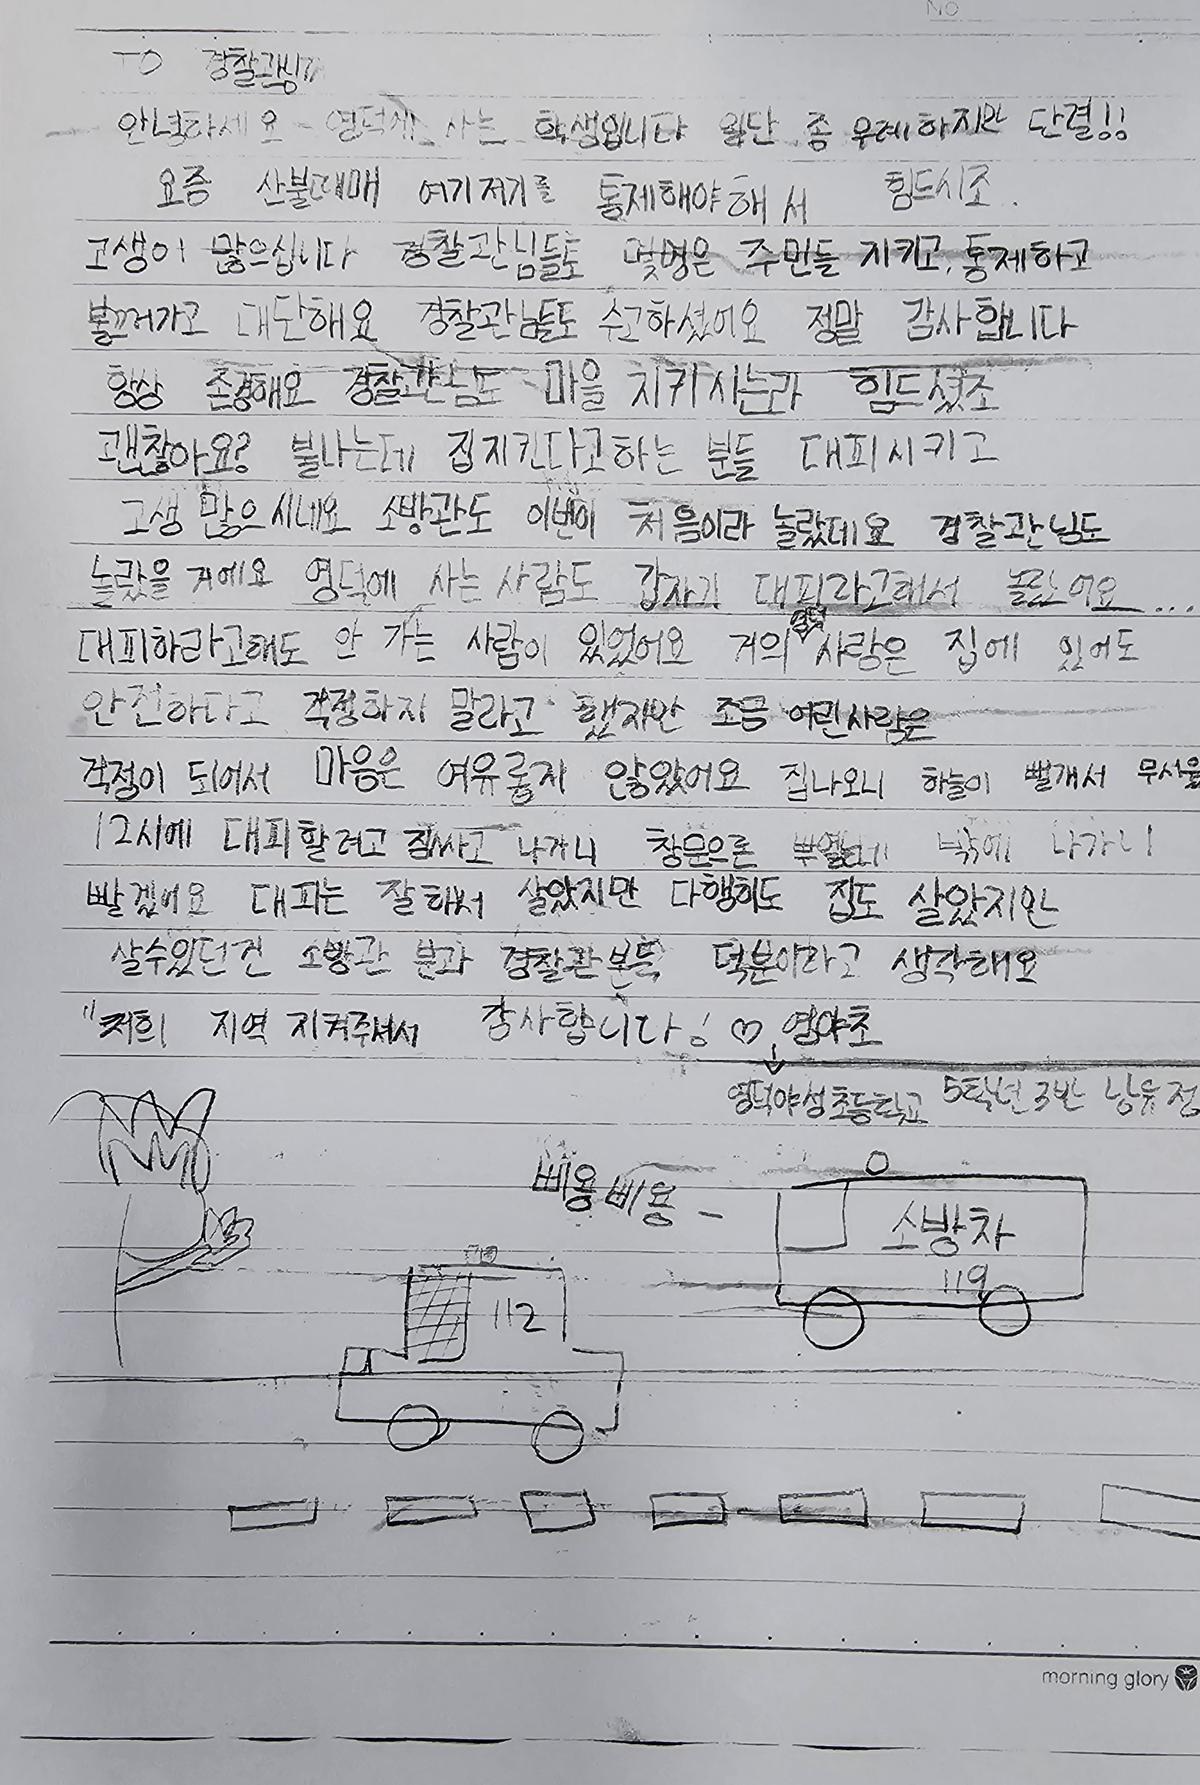 NO
TO 경찰관님께
안녕하세요 영덕에 사는 학생입니다 일단 좀 무례하지만 단결!!
요즘 산불때매 여기저기를 통제해야해서 힘드시조.
고생이 많으십니다 경찰관님들도 몇명은 주민들 지키고, 통제하고
불끄러가고 대단해요 경찰관님들도 수고하셨어요 정말 감사합니다
항상 존경해요 경찰관님도 마을 지키시는라 힘드셨조
괜찮아요? 불나는데 집지킨다고하는 분들 대피시키고
고생 많으시네요 소방관도 이번이 처음이라 놀랐데요 경찰관님도
놀랐을 거에요 영덕에 사는 사람도 갑자기 대피라고해서 놀랐어요...
대피하라고해도 안 가는 사람이 있었어요 거의 사람은 집에 있어도
안전하다고 걱정하지 말라고 했지만 조금 어린사람은
걱정이 되어서 마음은 여유롭지 않았어요 집나오니 하늘이 빨개서
12시에 대피할려고 짐싸고 나가니 창문으론 밖에 나가니
빨겠어요 대피는 잘해서 살았지만 다행히도 집도 살았지만
살수있던건 소방관 분과 경찰관분득 덕분이라고 생각해요
"저희 지역 지켜주셔서 감사합니다! ♡ 영야초
영덕야성초등학교 5학년 3반
삐용삐용
소방차
119
112
morning glory